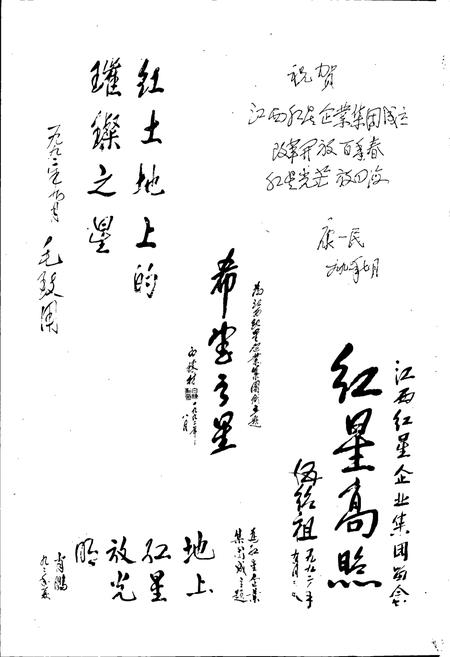 祝贺
江西红星企業集团成立
改革开放百年春
红星光芒放四海
康一民
一九九二年七月
红土地上的
璀璨之星
一九九二年八月
毛致用
希望之星
為江西红星企業集團創立題
白棟材
一九九二年八月
江西红星企业集团留念
红星高照
伍绍祖
一九九二年
地上
红星
放光
明
集团成立题
肖鹏
九二年夏